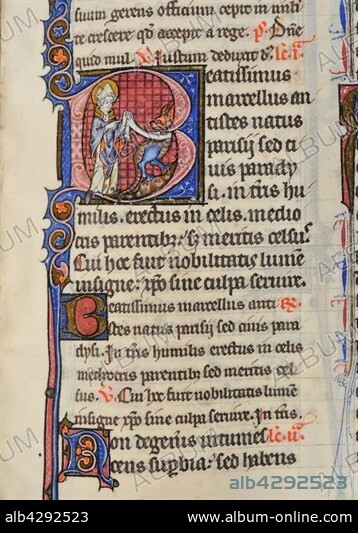 suum gerens officium cepit in mili
te crescere qd accepte a rege. p. Dne
quid mul. V. Justum deduxit d. lc. i.
Beatissimus
marcellus an
tistes natus
parisij sed ci
uis paradÿ
si. in tris hu
milis. erectus in celis. medio
cris parentibz. sz meritis celsus.
Cui hoc fuit nobilitatis lumē
insigne. xpo sine culpa seruire.
Beatissimus marcellus anti R.
stes natus parisij sed ciuis para
dysi. In tris humilis erectus in celis
mediocris parentibz sed meritis cel
sus. V. Cui hoc fuit nobilitatis lumē
insigne xpo sine culpa seruire. In tris.
Non degenius lc. ii.
cens supbia. sed habens
alb4292523
alb4292523
www.album-online.com